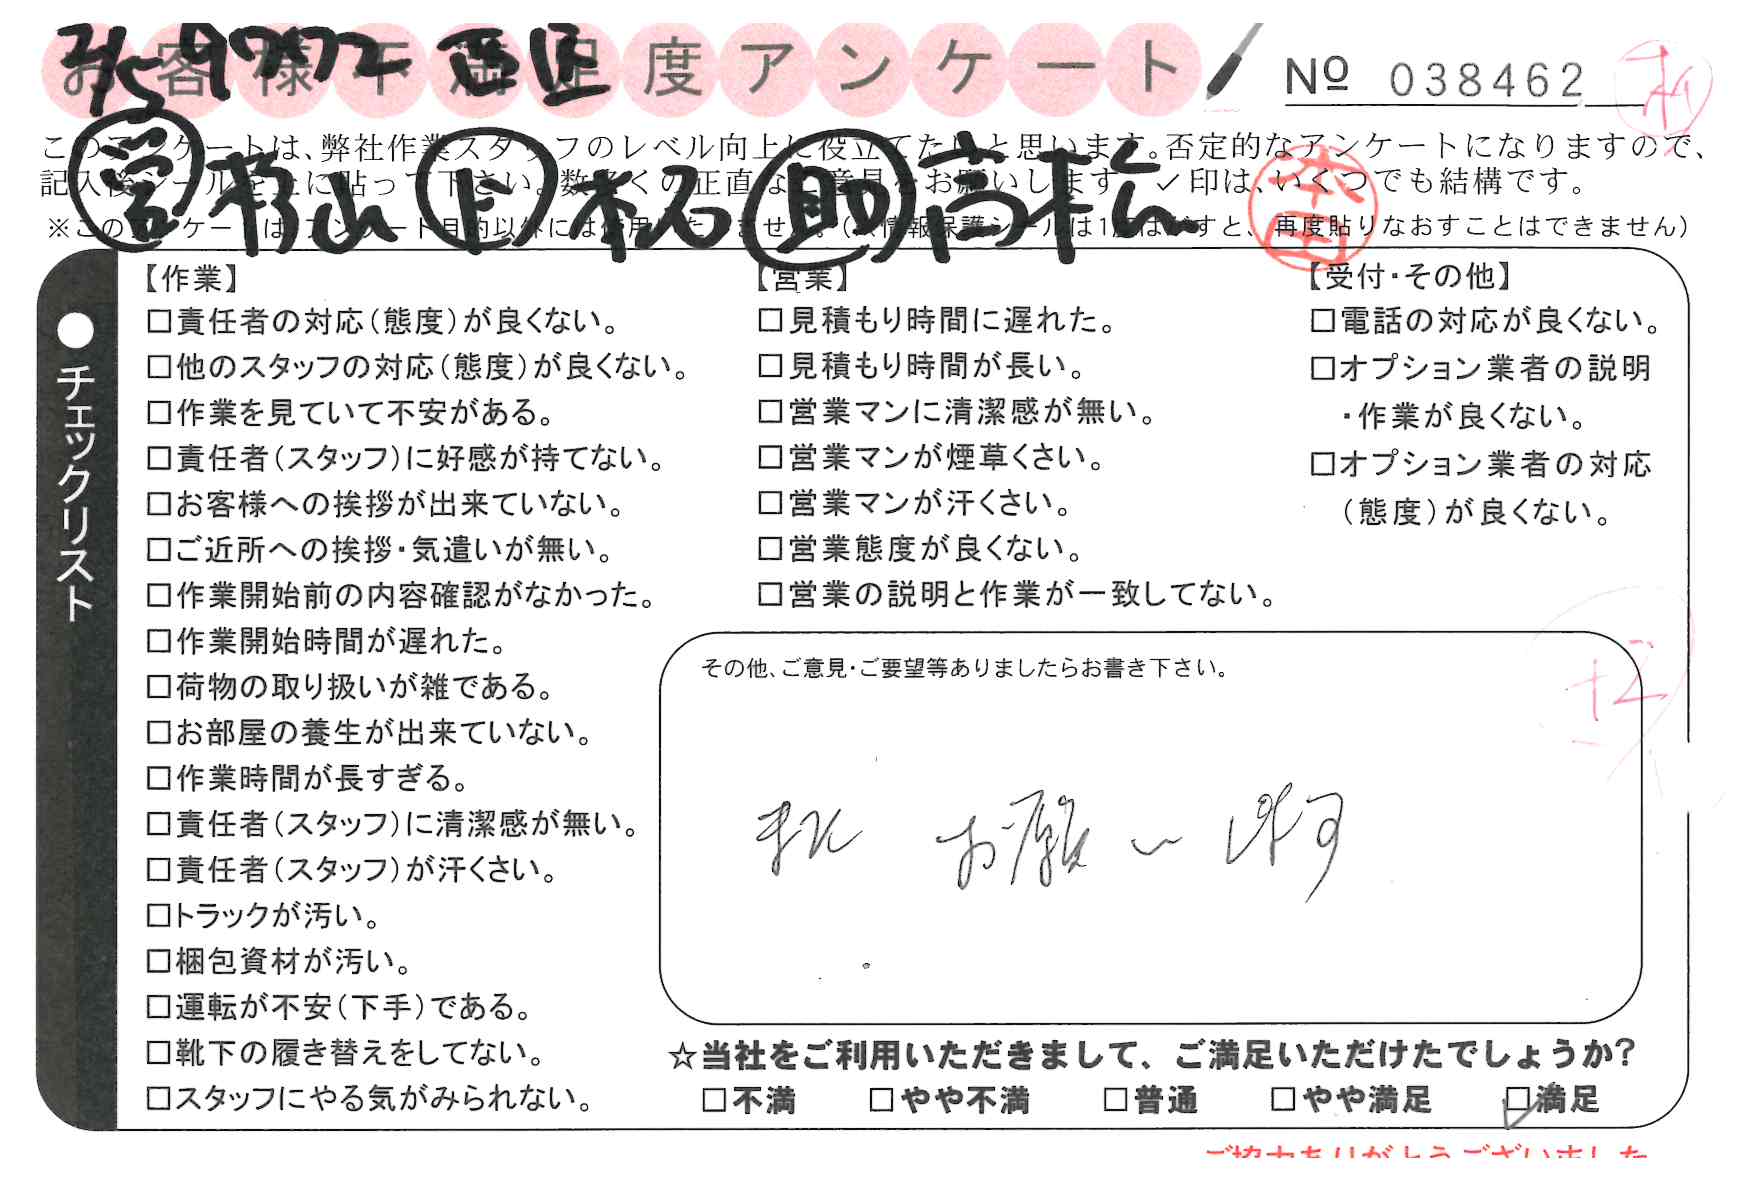 お客様不満足度アンケート
2/5 9772 西区
Nº 038462
このアンケートは、弊社作業スタッフのレベル向上に役立てたいと思います。否定的なアンケートになりますので、
記入後シールを上に貼って下さい。数多くの正直なご意見をお願いします ✓印は、いくつでも結構です。
営 杉山 下 松石 助 高松
本田
※このアンケートは、アンケート目的以外には使用いたしません。(※情報保護シールは1度はがすと、再度貼りなおすことはできません)
●チェックリスト
【作業】
□責任者の対応(態度)が良くない。
□他のスタッフの対応(態度)が良くない。
□作業を見ていて不安がある。
□責任者(スタッフ)に好感が持てない。
□お客様への挨拶が出来ていない。
□ご近所への挨拶・気遣いが無い。
□作業開始前の内容確認がなかった。
□作業開始時間が遅れた。
□荷物の取り扱いが雑である。
□お部屋の養生が出来ていない。
□作業時間が長すぎる。
□責任者(スタッフ)に清潔感が無い。
□責任者(スタッフ)が汗くさい。
□トラックが汚い。
□梱包資材が汚い。
□運転が不安(下手)である。
□靴下の履き替えをしてない。
□スタッフにやる気がみられない。
【営業】
□見積もり時間に遅れた。
□見積もり時間が長い。
□営業マンに清潔感が無い。
□営業マンが煙草くさい。
□営業マンが汗くさい。
□営業態度が良くない。
□営業の説明と作業が一致してない。
【受付・その他】
□電話の対応が良くない。
□オプション業者の説明
・作業が良くない。
□オプション業者の対応
(態度)が良くない。
その他、ご意見・ご要望等ありましたらお書き下さい。
+2
お願いします
☆当社をご利用いただきまして、ご満足いただけたでしょうか?
□不満 □やや不満 □普通 □やや満足 ☑満足
ご協力ありがとうございました